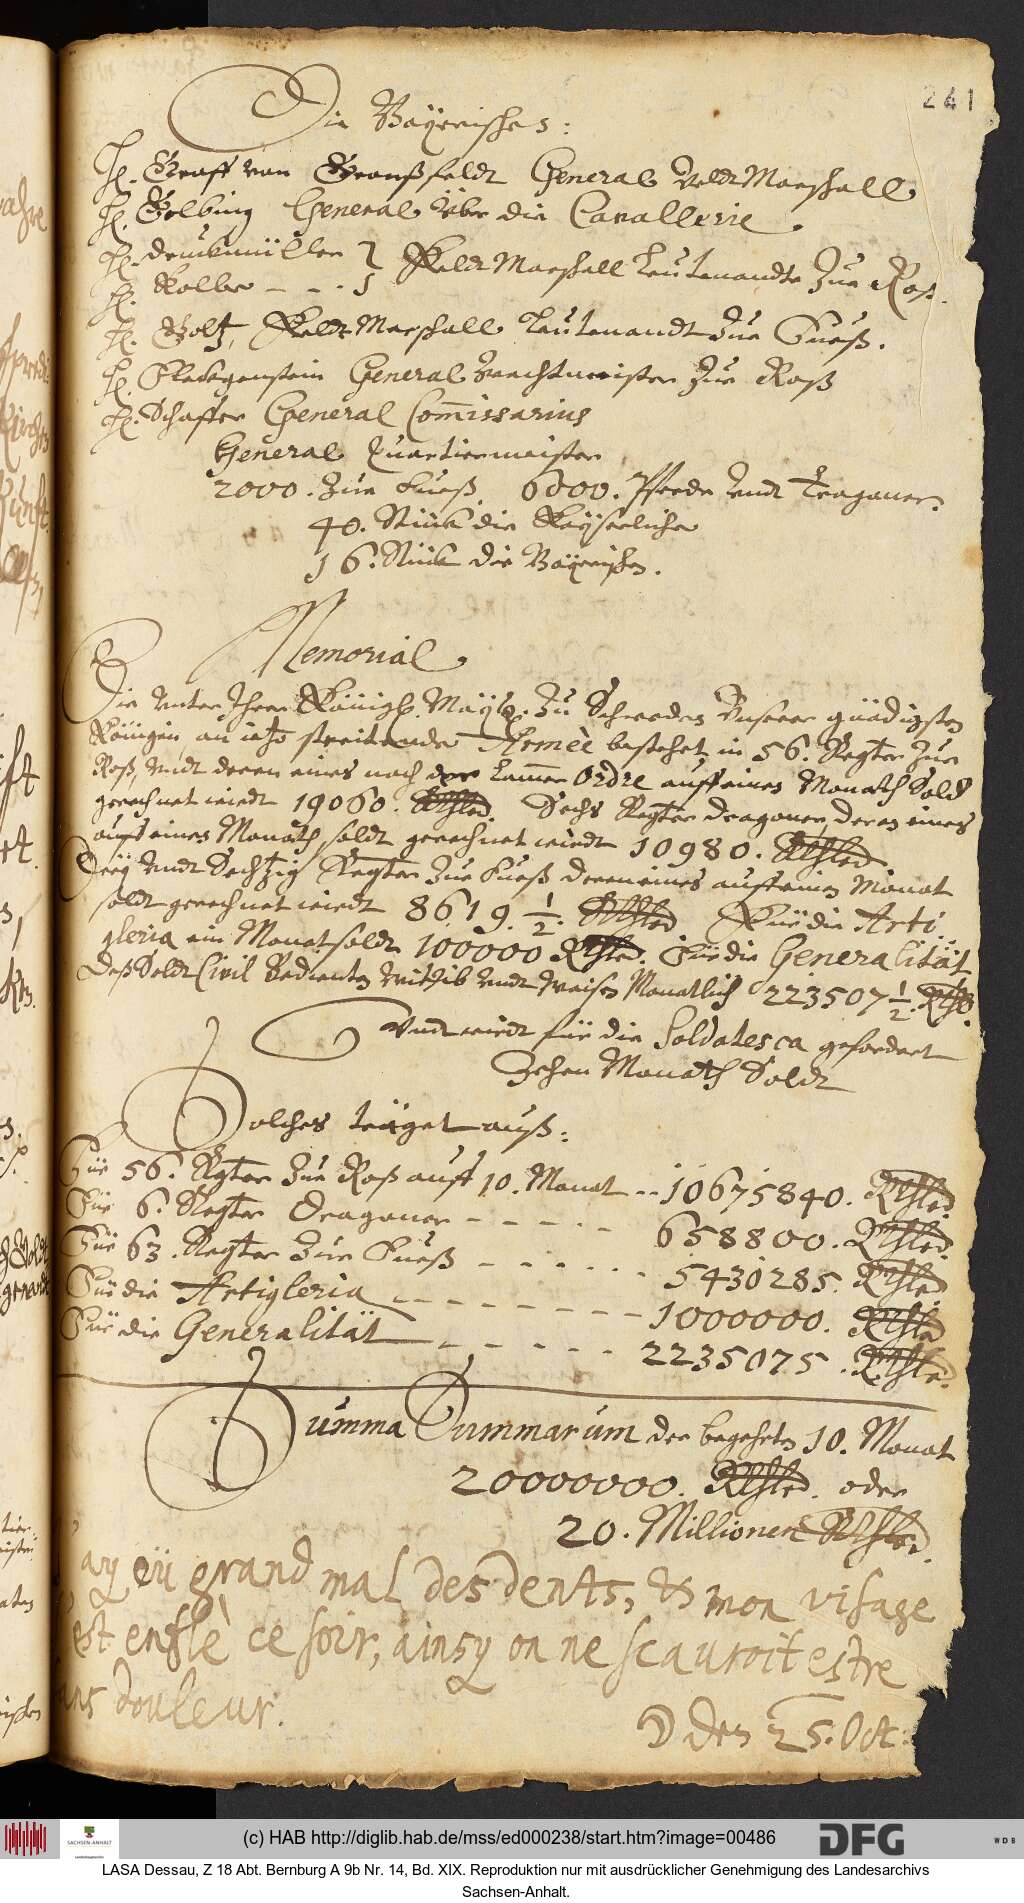 241
Die Bayerischen:
H. Graff von Gronßfeldt General Veldt Marschall
H. Gelbing General Über die Cavallerie.
H. Druckmüller } Feldt Marschall Leutenandte Zue Roß.
H. Kolbe - - - }
H. Goltz, Feldt Marschall Leutenandt Zue Fueß.
H. Fleckgenstein General Wachtmeister Zue Roß
H. Schaffer General Com̃issarius
General Quartiermeister
2000. Zue Fueß, 6000. Pferde Undt Tragoner.
40. Stück die Kayserliche
16. Stück die Bayerischen.
Memorial
Die Unter Ihrer Königl. Mayt. Zu Schweden Unserer gnädigsten
Königin, an ietzo streitende Armeè bestehet, in 56. Regter Zue
Roß, Undt deren eines nach der Cammer Ordre auff einen Monath Sold
gerechnet wirdt 19060. Rthler. Sechs Regter Dragoner, deren eines
auff einen Monath soldt gerechnet wirdt 10980. Rthler
Drey Undt Sechtzig Regter Zue Fueß deren eines auff einen Monat
soldt gerechnet wirdt 8619. 1/2. Rthler. Für die Arti-
gleria ein Monat soldt 100000 Rthler. Für die Generalität
Deß Feldt Civil Bedienten Wittib Undt Weisen Monatlich 223507 1/2. Rthlr.
Undt wirdt für die Soldatesca gefordert
Zehen Monath Soldt
Solches träget auß:
Für 56. Regter Zue Roß auff 10. Monat - - 10675840. Rthler.
Für 6. Regter Dragoner - - - - - 658800. Rthler.
Für 63. Regter Zue Fueß - - - - - - 5430285. Rthler
Für die Artigleria - - - - - - - - 1000000. Rthler
Für die Generalität - - - - - - 2235075. Rthler.
Summa Summarum der begehrten 10. Monat
20000000. Rthler. oder
20. Millionen Rthler.
ay eü grand mal des dents, & mon visage
est enflè ce soir, ainsy on ne scauroit estre
sans douleur.
☽ den 25. Oct:
(c) HAB http://diglib.hab.de/mss/ed000238/start.htm?image=00486
SACHSEN-ANHALT
DFG
WDB
LASA Dessau, Z 18 Abt. Bernburg A 9b Nr. 14, Bd. XIX. Reproduktion nur mit ausdrücklicher Genehmigung des Landesarchivs
Sachsen-Anhalt.